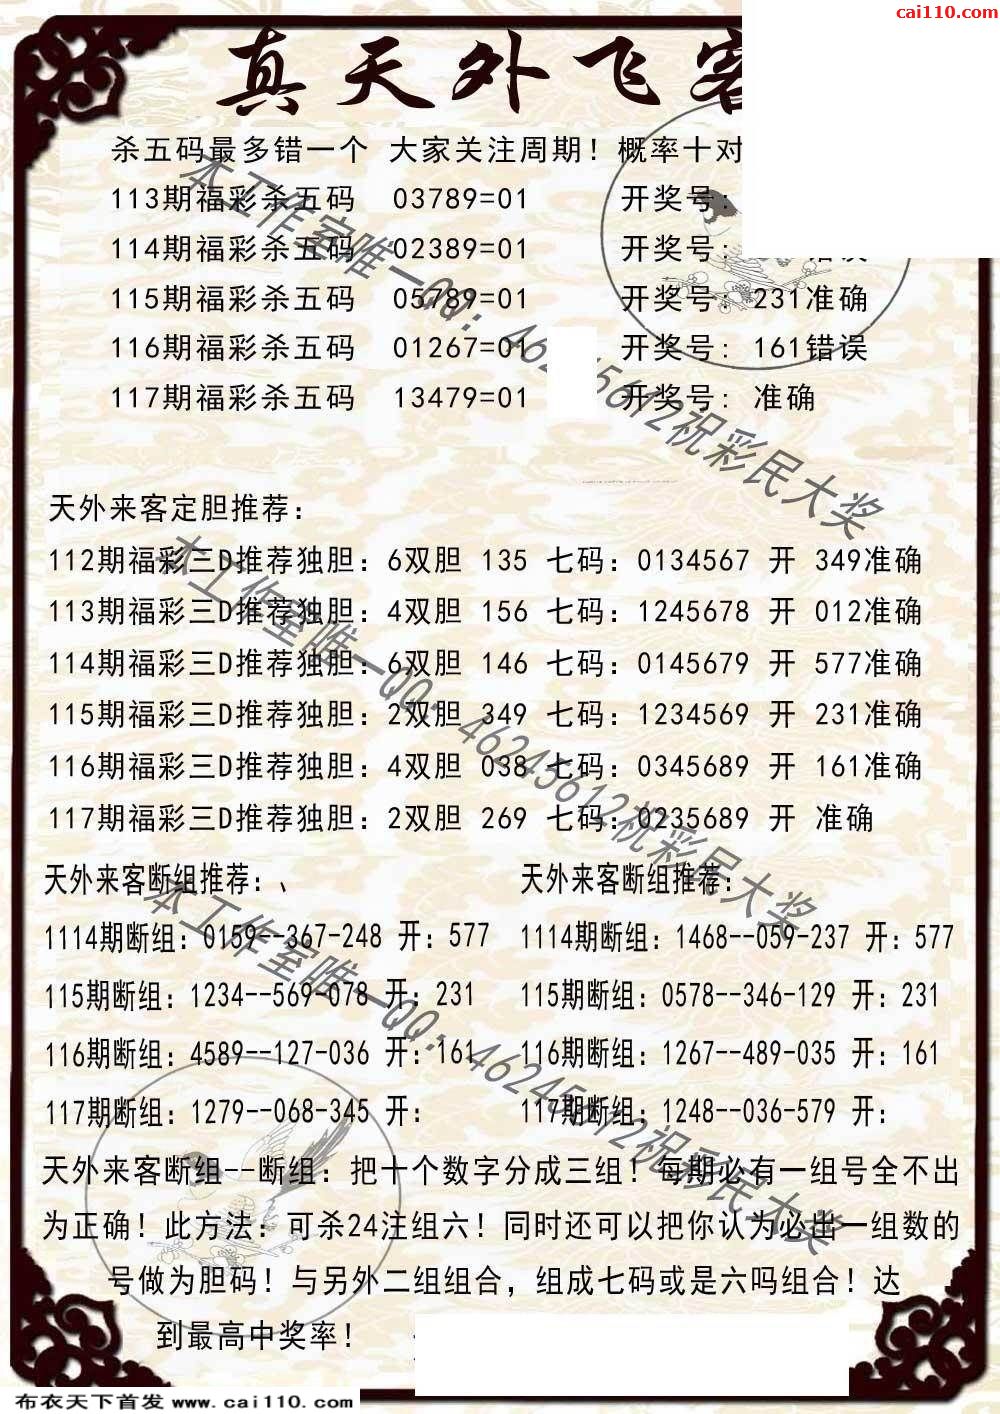 cai110.com
真天外飞客
杀五码最多错一个 大家关注周期！概率十对
113期福彩杀五码 03789=01 开奖号:
114期福彩杀五码 02389=01 开奖号: 错误
115期福彩杀五码 05789=01 开奖号: 231准确
116期福彩杀五码 01267=01 开奖号: 161错误
117期福彩杀五码 13479=01 开奖号: 准确
本工作室唯一QQ: 46245612祝彩民大奖
天外来客定胆推荐:
112期福彩三D推荐独胆: 6双胆 135 七码: 0134567 开 349准确
113期福彩三D推荐独胆: 4双胆 156 七码: 1245678 开 012准确
114期福彩三D推荐独胆: 6双胆 146 七码: 0145679 开 577准确
115期福彩三D推荐独胆: 2双胆 349 七码: 1234569 开 231准确
116期福彩三D推荐独胆: 4双胆 038 七码: 0345689 开 161准确
117期福彩三D推荐独胆: 2双胆 269 七码: 0235689 开 准确
本工作室唯一QQ: 46245612祝彩民大奖
天外来客断组推荐:、 天外来客断组推荐:
1114期断组: 0159--367-248 开: 577 1114期断组: 1468--059-237 开: 577
115期断组: 1234--569-078 开: 231 115期断组: 0578--346-129 开: 231
116期断组: 4589--127-036 开: 161 116期断组: 1267--489-035 开: 161
117期断组: 1279--068-345 开: 117期断组: 1248--036-579 开:
本工作室唯一QQ: 46245612祝彩民大奖
天外来客断组--断组: 把十个数字分成三组！每期必有一组号全不出
为正确！此方法: 可杀24注组六！同时还可以把你认为必出一组数的
号做为胆码！与另外二组组合，组成七码或是六吗组合！达
到最高中奖率！
布衣天下首发 www.cai110.com